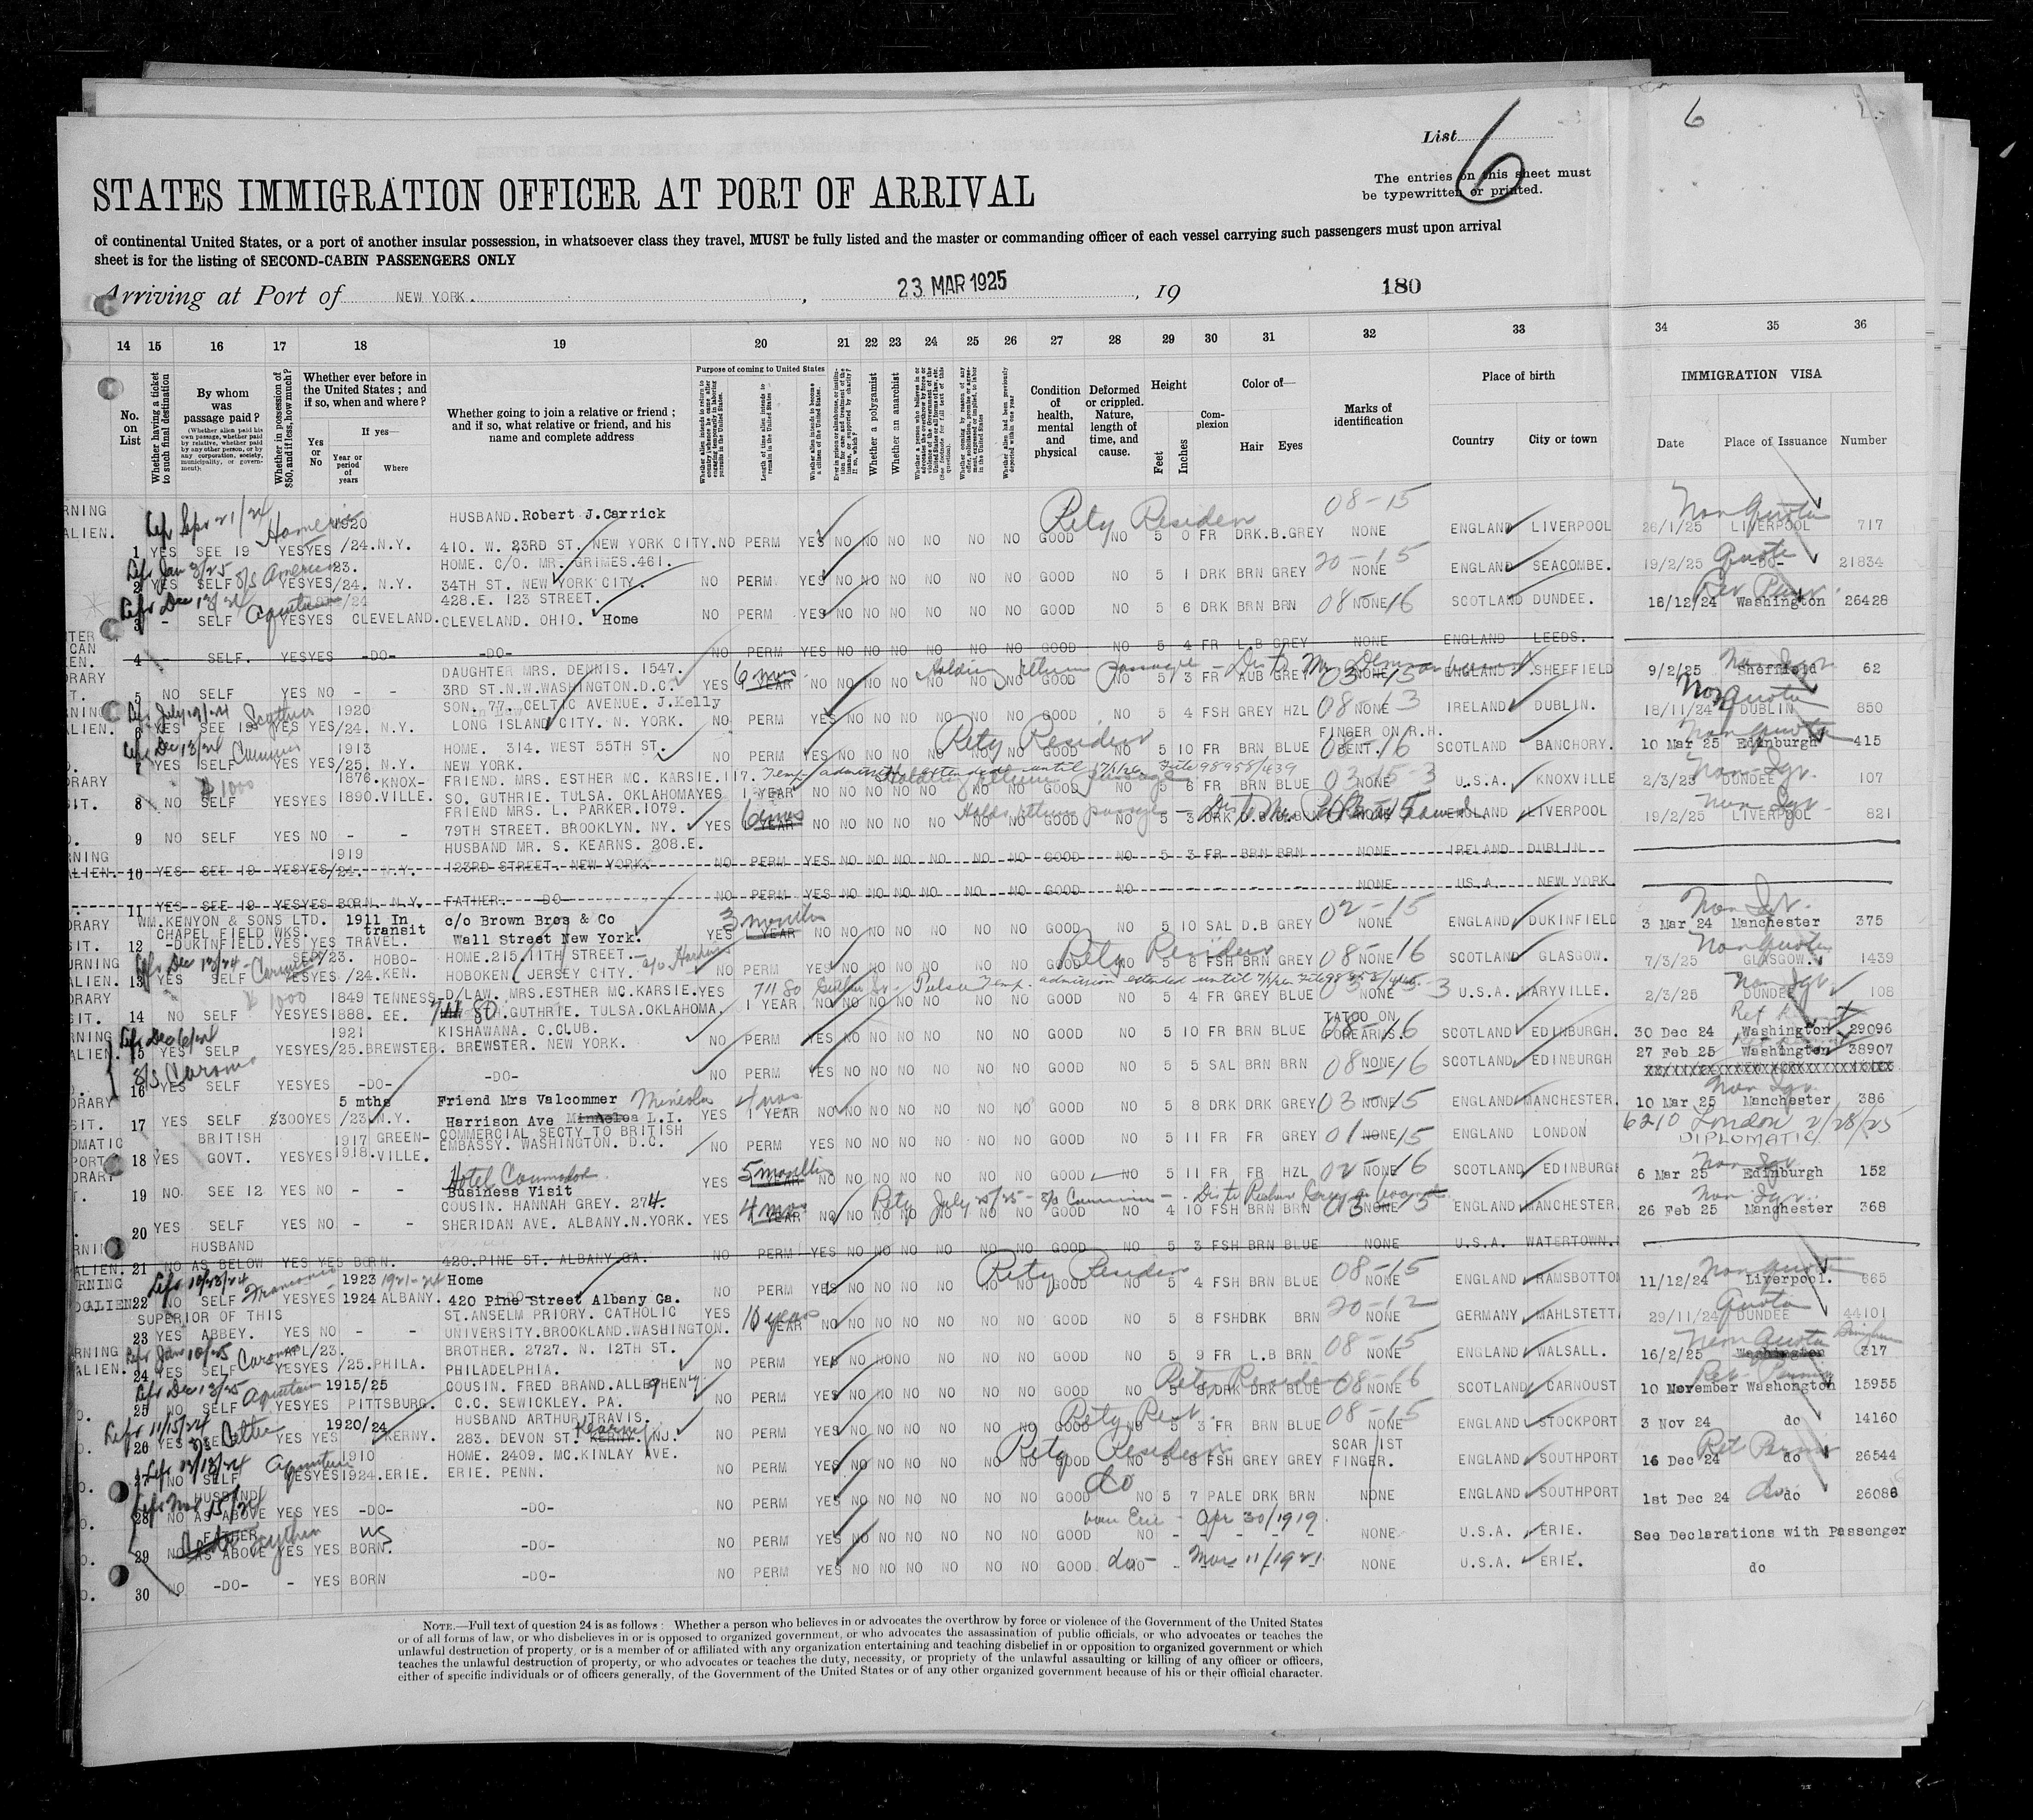 List 6
6
The entries on this sheet must
be typewritten or printed.
STATES IMMIGRATION OFFICER AT PORT OF ARRIVAL
of continental United States, or a port of another insular possession, in whatsoever class they travel, MUST be fully listed and the master or commanding officer of each vessel carrying such passengers must upon arrival
sheet is for the listing of SECOND-CABIN PASSENGERS ONLY
Arriving at Port of NEW YORK. , 23 MAR 1925 , 19 180
14 15 16 17 18 19 20 21 22 23 24 25 26 27 28 29 30 31 32 33 34 35 36
No. on List
Whether having a ticket to such final destination
By whom was passage paid?
(Whether alien paid his own passage, whether paid by relative, whether paid by any other person, or by any corporation, society, municipality, or government)
Whether in possession of $50, and if less, how much?
Whether ever before in the United States; and if so, when and where?
Yes or No
If yes—
Year or period of years
Where
Whether going to join a relative or friend; and if so, what relative or friend, and his name and complete address
Purpose of coming to United States
Length of time alien intends to remain in the United States
Whether alien intends to become a citizen of the United States
Whether a polygamist
Whether an anarchist
Condition of health, mental and physical
Deformed or crippled. Nature, length of time, and cause.
Height
Feet Inches
Complexion
Color of—
Hair Eyes
Marks of identification
Place of birth
Country City or town
IMMIGRATION VISA
Date Place of Issuance Number
RNING ALIEN. 1 YES SEE 19 YES YES 1920/24. N.Y. HUSBAND. Robert J. Carrick 410. W. 23RD ST. NEW YORK CITY. NO PERM YES NO NO NO NO NO NO GOOD NO 5 0 FR DRK.B. GREY 08-15 NONE ENGLAND LIVERPOOL 26/1/25 Non Quota LIVERPOOL 717
2 YES SELF YES YES 23./24. N.Y. HOME. C/O. MR. GRIMES. 461. 34TH ST. NEW YORK CITY. NO PERM YES NO NO NO NO NO NO GOOD NO 5 1 DRK BRN GREY 20-15 NONE ENGLAND SEACOMBE. 19/2/25 Quota -DO- 21834
3 - SELF YES YES CLEVELAND. 428. E. 123 STREET. CLEVELAND. OHIO. Home NO PERM YES NO NO NO NO NO NO GOOD NO 5 6 DRK BRN BRN 08 NONE 16 SCOTLAND DUNDEE. 18/12/24 Washington 26428
4 - SELF. YES YES -DO- -DO- NO PERM YES NO NO NO NO NO NO GOOD NO 5 4 FR L.B GREY NONE ENGLAND LEEDS.
5 NO SELF YES NO - - DAUGHTER MRS. DENNIS. 1547. 3RD ST. N.W. WASHINGTON. D.C. YES 6 mos YEAR NO NO NO NO NO NO GOOD NO 5 3 FR AUB GREY 03 NONE 15 ENGLAND SHEFFIELD 9/2/25 Sheffield 62
6 YES SEE 19 YES YES 1920/24. N.Y. SON. 77. CELTIC AVENUE. J. Kelly LONG ISLAND CITY. N. YORK. NO PERM YES NO NO NO NO NO NO GOOD NO 5 4 FSH GREY HZL 08 NONE 13 IRELAND DUBLIN. 18/11/24 Non Quota DUBLIN 850
7 YES SELF YES YES 1913/25. N.Y. HOME. 314. WEST 55TH ST. NEW YORK. NO PERM YES NO NO NO NO NO NO GOOD NO 5 10 FR BRN BLUE FINGER ON R.H. BENT. 08 16 SCOTLAND BANCHORY. 10 Mar 25 Non Quota Edinburgh 415
8 NO SELF YES YES 1876. 1890. KNOX-VILLE. $1000 FRIEND. MRS. ESTHER MC. KARSIE. 117. SO. GUTHRIE. TULSA. OKLAHOMA YES 1 YEAR NO NO NO NO NO NO GOOD NO 5 6 FR BRN BLUE NONE U.S.A. KNOXVILLE 2/3/25 DUNDEE 107
9 NO SELF YES NO - - FRIEND MRS. L. PARKER. 1079. 79TH STREET. BROOKLYN. NY. YES 6 mos YEAR NO NO NO NO NO NO GOOD NO 5 3 DRK ENGLAND LIVERPOOL 19/2/25 LIVERPOOL 821
10 YES SEE 19 YES YES 1919/24. N.Y. HUSBAND MR. S. KEARNS. 208. E. 123RD STREET. NEW YORK. NO PERM YES NO NO NO NO NO NO GOOD NO 5 3 FR BRN BRN NONE IRELAND DUBLIN
11 YES SEE 19 YES YES BORN. N.Y. FATHER. -DO- NO PERM YES NO NO NO NO NO NO GOOD NO NONE US.A. NEW YORK.
12 WM. KENYON & SONS LTD. CHAPEL FIELD WKS. -DUKINFIELD. YES YES 1911 In transit TRAVEL. c/o Brown Bros & Co Wall Street New York. YES 3 months YEAR NO NO NO NO NO NO GOOD NO 5 10 SAL D.B GREY 02-15 NONE ENGLAND DUKINFIELD 3 Mar 24 Manchester 375
13 YES SELF YES YES /23. /24. HOBO-KEN. HOME. 215. 11TH STREET. HOBOKEN JERSEY CITY. NO PERM YES NO NO NO NO NO NO GOOD NO 5 6 FSH BRN GREY 08 NONE 16 SCOTLAND GLASGOW. 7/3/25 Non Quota GLASGOW. 1439
14 NO SELF YES YES 1849 1888. TENNESS-EE. $1000 D/LAW. MRS. ESTHER MC. KARSIE. GUTHRIE. TULSA. OKLAHOMA. YES 1 YEAR NO NO NO NO NO NO GOOD NO 5 4 FR GREY BLUE NONE U.S.A. MARYVILLE. 2/3/25 DUNDEE 108
15 YES SELF YES YES 1921/25. BREWSTER. KISHAWANA. C. CLUB. BREWSTER. NEW YORK. NO PERM YES NO NO NO NO NO NO GOOD NO 5 10 FR BRN BLUE TATOO ON FOREARMS. 08-16 SCOTLAND EDINBURGH. 30 Dec 24 Washington 29096
16 YES SELF YES YES -DO- -DO- NO PERM YES NO NO NO NO NO NO GOOD NO 5 5 SAL BRN BRN 08 NONE 16 SCOTLAND EDINBURGH 27 Feb 25 Washington 38907
17 YES SELF $300 YES 5 mths /23. N.Y. Friend Mrs Valcommer Harrison Ave Mineola L.I. YES 4 mos 1 YEAR NO NO NO NO NO NO GOOD NO 5 8 DRK DRK GREY 03 NONE 15 ENGLAND MANCHESTER. 10 Mar 25 Manchester 386
18 YES BRITISH GOVT. YES YES 1917 1918. GREEN-VILLE. COMMERCIAL SECTY TO BRITISH EMBASSY. WASHINGTON. D.C. NO PERM YES NO NO NO NO NO NO GOOD NO 5 11 FR FR GREY 01 NONE 15 ENGLAND LONDON 6210 London 2/28/25 DIPLOMATIC
19 NO SEE 12 YES NO - - Business Visit YES 5 months YEAR NO NO NO NO NO NO GOOD NO 5 11 FR FR HZL 02 NONE 16 SCOTLAND EDINBURGH 6 Mar 25 Edinburgh 152
20 YES SELF YES NO - - COUSIN. HANNAH GREY. 274. SHERIDAN AVE. ALBANY. N. YORK. YES 4 mos YEAR NO NO NO NO NO NO GOOD NO 4 10 FSH BRN BRN NONE ENGLAND MANCHESTER. 26 Feb 25 Manchester 368
21 NO HUSBAND AS BELOW YES YES BORN. 420. PINE ST. ALBANY. GA. NO PERM YES NO NO NO NO NO NO GOOD NO 5 3 FSH BRN BLUE NONE U.S.A. WATERTOWN.
22 NO SELF YES YES 1923 1924 ALBANY. Home 420 Pine Street Albany Ga. NO PERM YES NO NO NO NO NO NO GOOD NO 5 4 FSH BRN BLUE 08-15 NONE ENGLAND RAMSBOTTOM 11/12/24 Non Quota Liverpool. 665
23 YES SUPERIOR OF THIS ABBEY. YES NO - - ST. ANSELM PRIORY. CATHOLIC UNIVERSITY. BROOKLAND. WASHINGTON. YES 10 years YEAR NO NO NO NO NO NO GOOD NO 5 8 FSH DRK BRN 20-12 NONE GERMANY MAHLSTETT 29/11/24 Quota DUNDEE 44101
24 YES SELF YES YES APL/23. /25. PHILA. BROTHER. 2727. N. 12TH ST. PHILADELPHIA. NO PERM YES NO NO NO NO NO NO GOOD NO 5 9 FR L.B BRN 08-15 NONE ENGLAND WALSALL. 16/2/25 Non Quota Washington 317
25 NO SELF YES YES 1915/25 PITTSBURG. COUSIN. FRED BRAND. ALLEGHENY C.C. SEWICKLEY. PA. NO PERM YES NO NO NO NO NO NO GOOD NO 5 8 DRK DRK BLUE 08 NONE 16 SCOTLAND CARNOUST 10 November Washongton 15955
26 YES SELF YES YES 1920/24 KERNY. HUSBAND ARTHUR TRAVIS. 283. DEVON ST. Kearny NJ. NO PERM YES NO NO NO NO NO NO GOOD NO 5 3 FR BRN BLUE 08-15 NONE ENGLAND STOCKPORT 3 Nov 24 do 14160
27 NO SELF YES YES 1910 1924. ERIE. HOME. 2409. MC. KINLAY AVE. ERIE. PENN. NO PERM YES NO NO NO NO NO NO GOOD NO 5 8 FSH GREY GREY SCAR 1ST FINGER. ENGLAND SOUTHPORT 16 Dec 24 do 26544
28 NO HUSBAND AS ABOVE YES YES -DO- -DO- NO PERM YES NO NO NO NO NO NO GOOD NO 5 7 PALE DRK BRN NONE ENGLAND SOUTHPORT 1st Dec 24 do 26086
29 NO FATHER AS ABOVE YES YES US BORN. -DO- NO PERM YES NO NO NO NO NO NO GOOD NO - - - - - Apr 30/1919. NONE U.S.A. ERIE. See Declarations with Passenger
30 NO -DO- - YES BORN -DO- NO PERM YES NO NO NO NO NO NO GOOD NO do - Mar 11/1921 NONE U.S.A. ERIE. do
NOTE.—Full text of question 24 is as follows: Whether a person who believes in or advocates the overthrow by force or violence of the Government of the United States
or of all forms of law, or who disbelieves in or is opposed to organized government, or who advocates the assassination of public officials, or who advocates or teaches the
unlawful destruction of property, or is a member of or affiliated with any organization entertaining and teaching disbelief in or opposition to organized government or which
teaches the unlawful destruction of property, or who advocates or teaches the duty, necessity, or propriety of the unlawful assaulting or killing of any officer or officers,
either of specific individuals or of officers generally, of the Government of the United States or of any other organized government because of his or their official character.